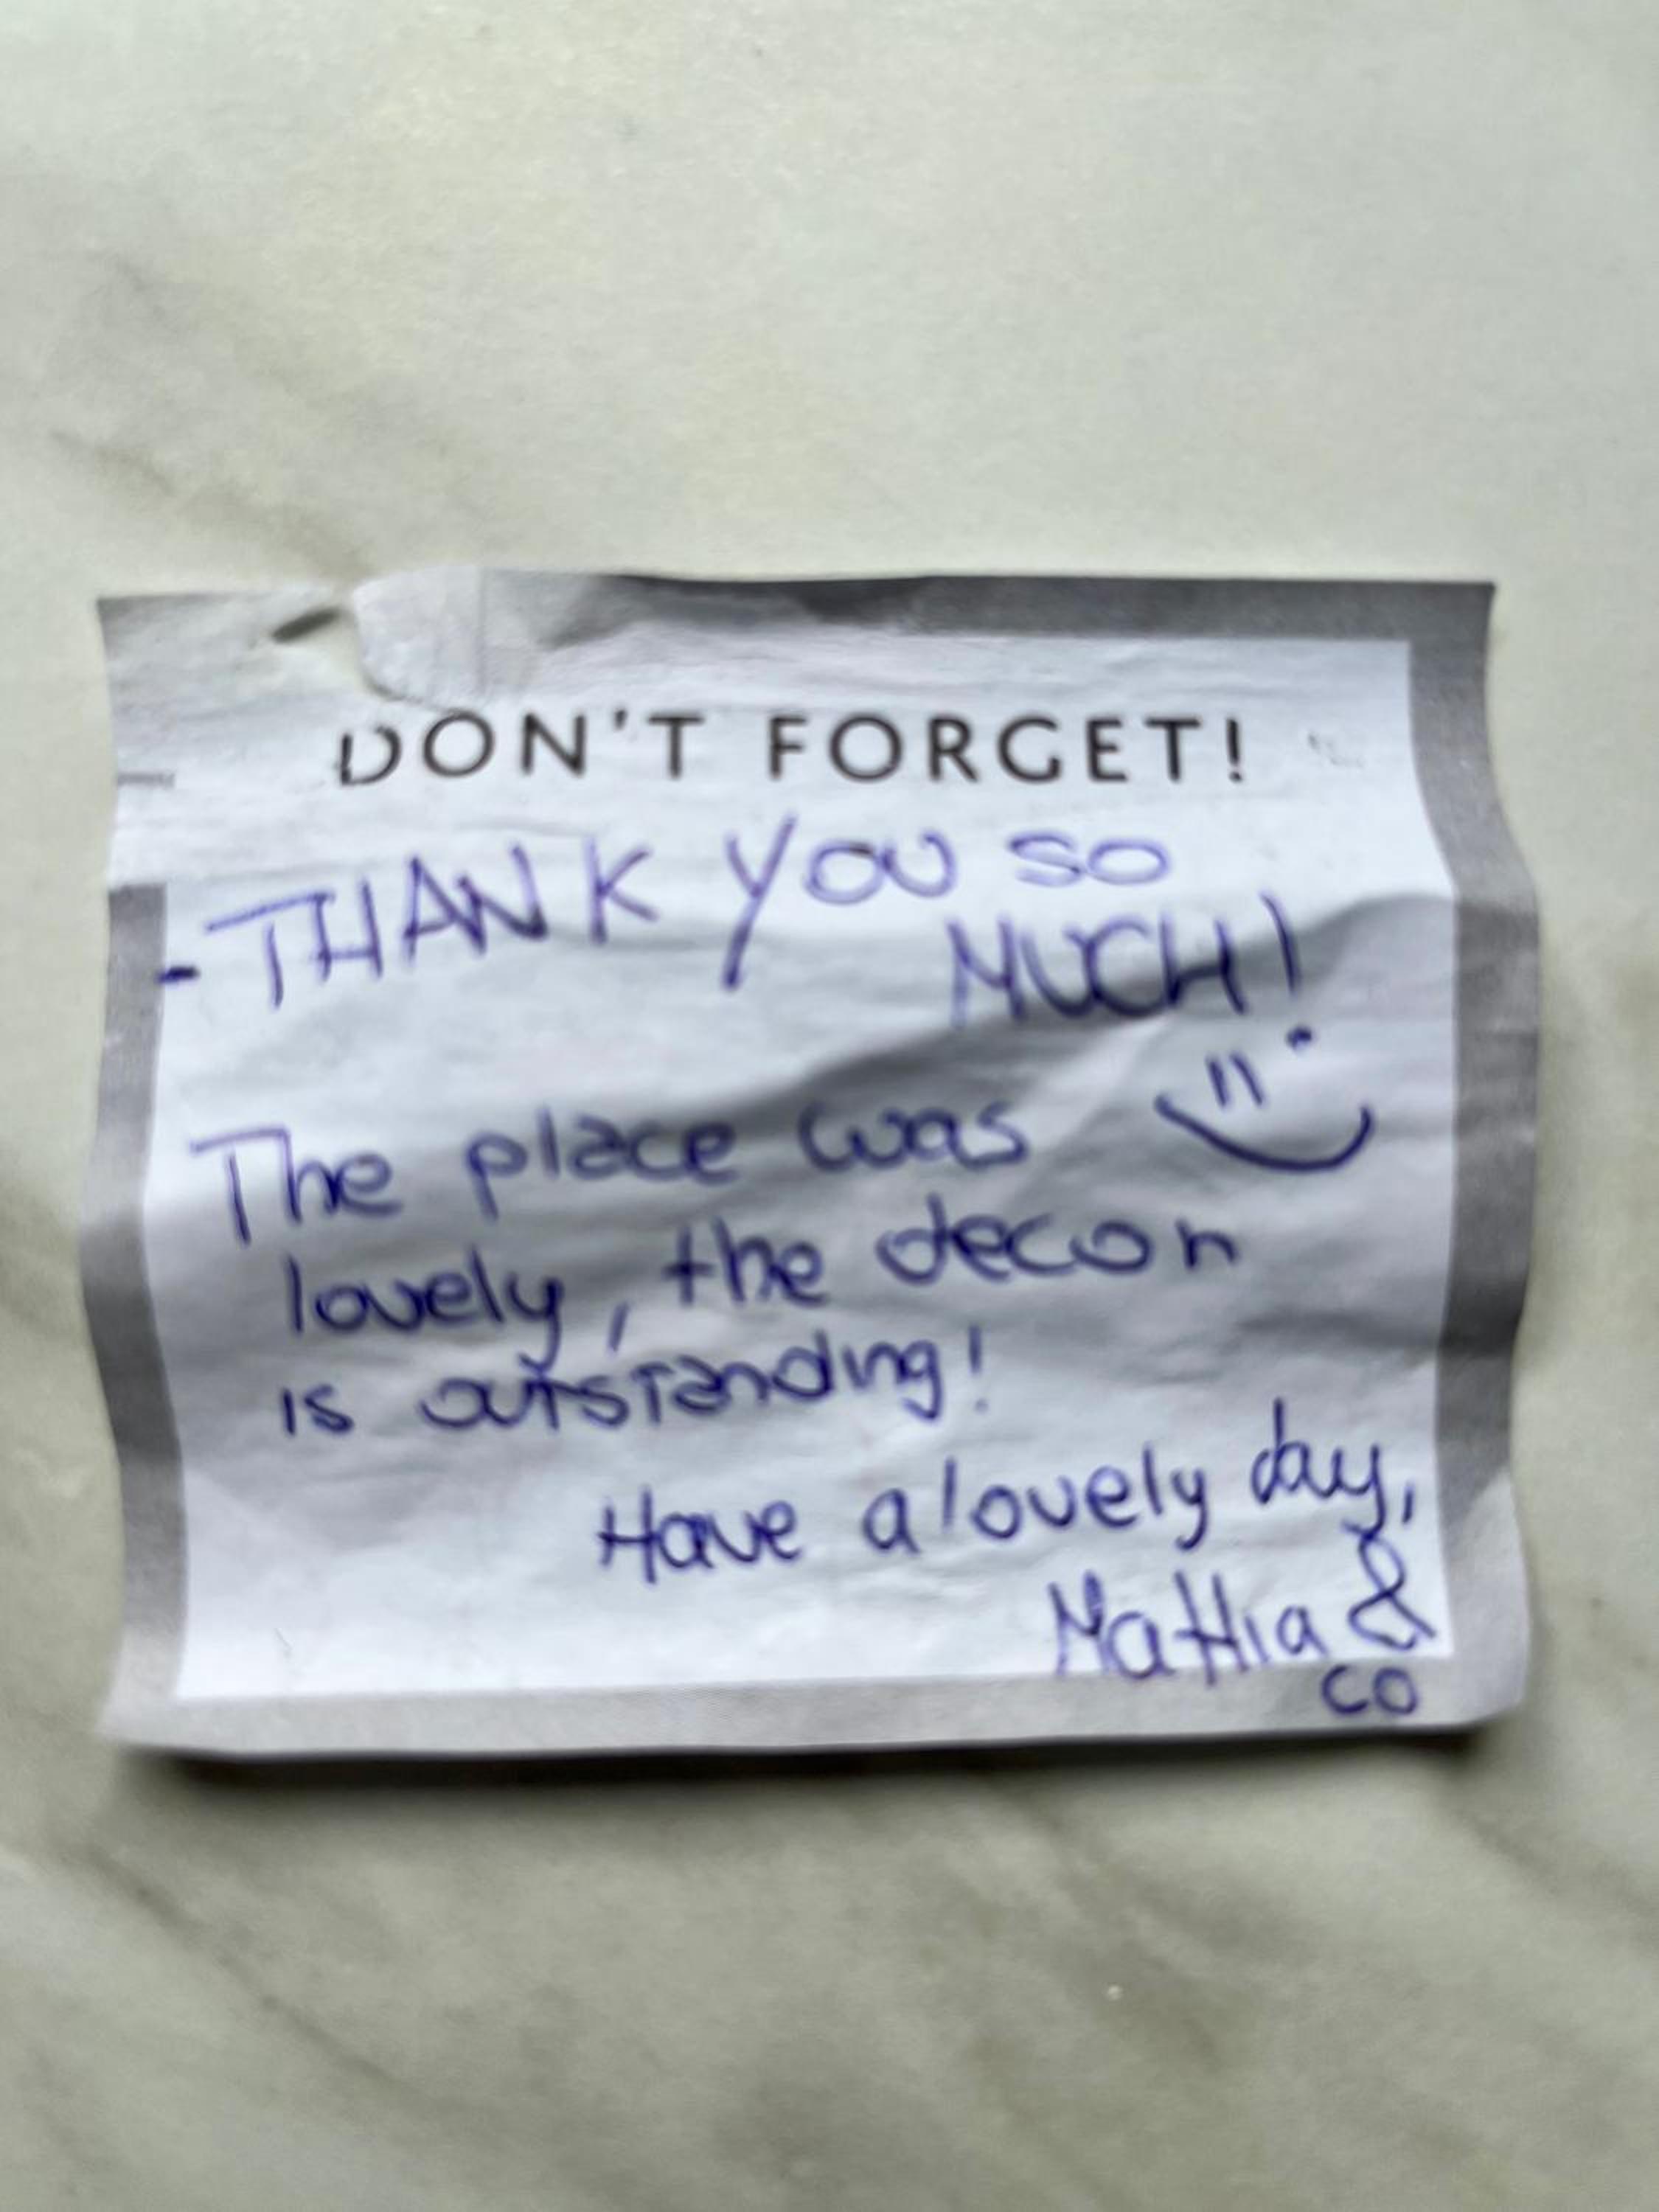 DON'T FORGET!
- THANK YOU SO
MUCH!
The place was
lovely, the decor
is outstanding!
Have a lovely day,
Mattia &
CO